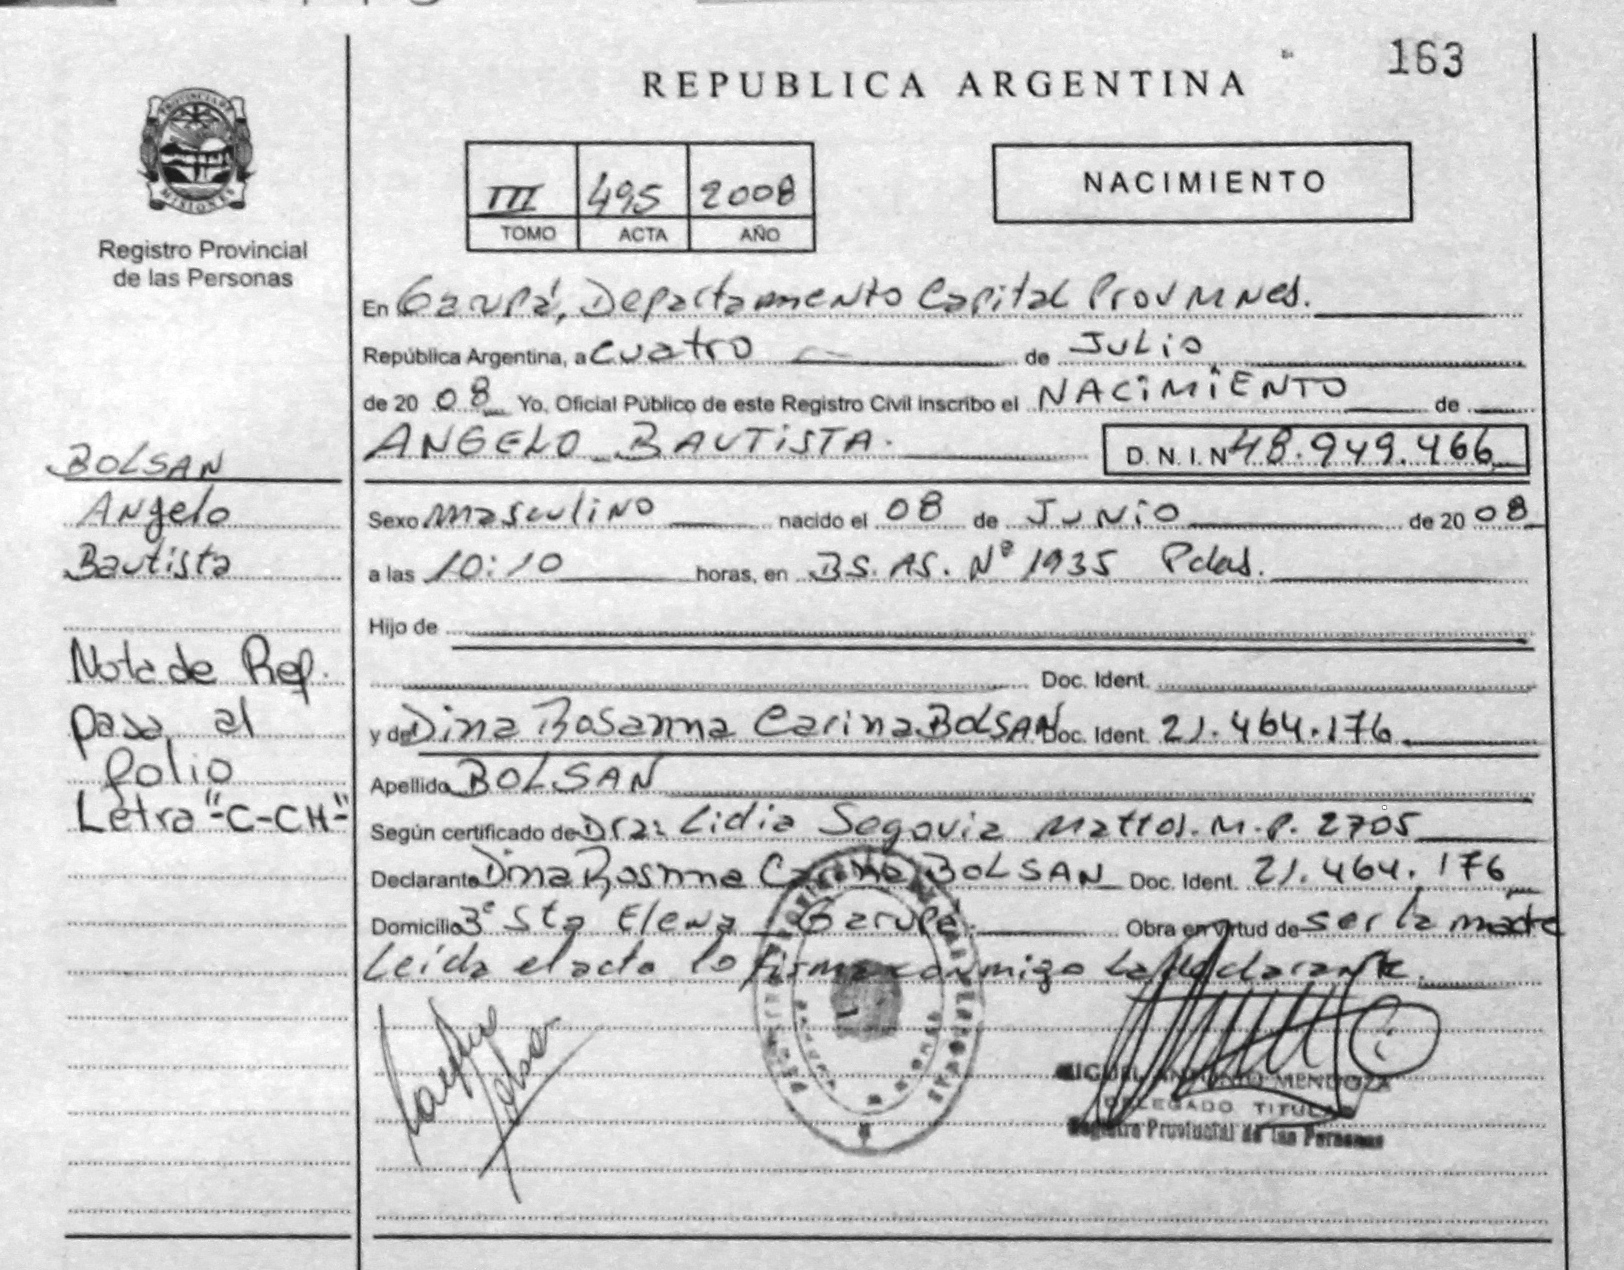 163
REPUBLICA ARGENTINA
PROVINCIA DE
MISIONES
Registro Provincial
de las Personas
III 495 2008
TOMO ACTA AÑO
NACIMIENTO
En Garupá, Departamento Capital Prov Mnes.
República Argentina, a cuatro de Julio
de 20 08 Yo, Oficial Público de este Registro Civil inscribo el NACIMIENTO de
ANGELO BAUTISTA. D.N.I.Nº 48.949.466
Sexo masculino nacido el 08 de Junio de 20 08
a las 10:10 horas, en BS. AS. Nº 1935 Pdas.
Hijo de
Doc. Ident.
y de Dina Rosanna Carina BOLSAN Doc. Ident. 21.464.176
Apellido BOLSAN
Según certificado de Dra: Lidia Segovia Mattos. M.P. 2705
Declarante Dina Rosanna Carina BOLSAN Doc. Ident. 21.464.176
Domicilio 3º Sta Elena Garupá Obra en virtud de ser la madre
Leída el acta lo firma conmigo la declarante.
BOLSAN
Angelo
Bautista
Nota de Rep.
pasa al
folio
Letra "-C-CH-"
MIGUEL ANTONIO MENDOZA
DELEGADO TITULAR
Registro Provincial de las Personas